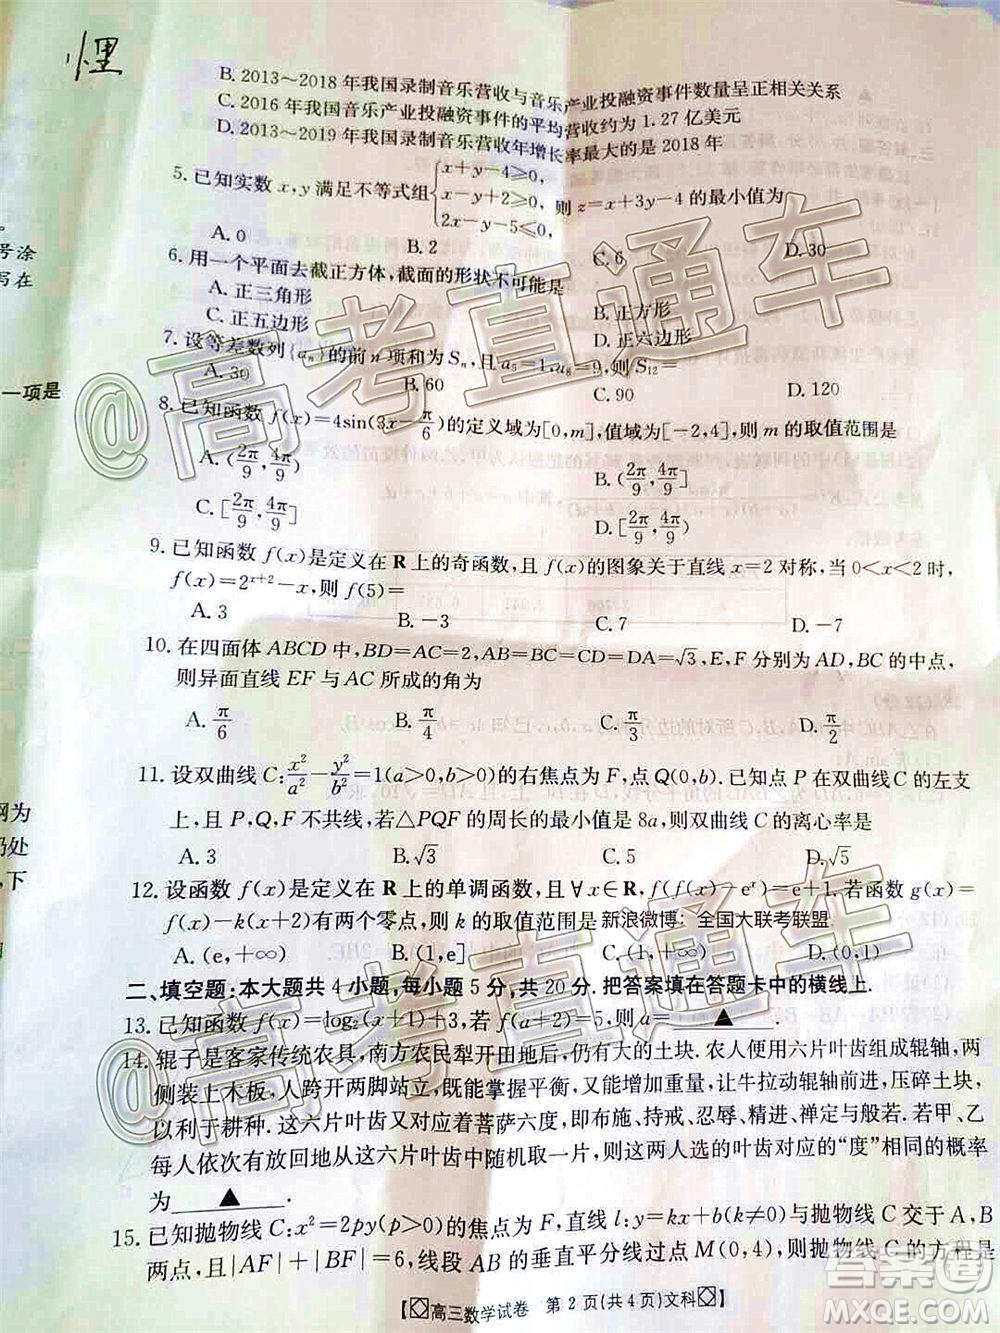 悝
B. 2013～2018 年我国录制音乐营收与音乐产业投融资事件数量呈正相关关系
C. 2016 年我国音乐产业投融资事件的平均营收约为 1.27 亿美元
D. 2013～2019 年我国录制音乐营收年增长率最大的是 2018 年
5. 已知实数 x, y 满足不等式组{x+y-4≥0, x-y+2≥0, 2x-y-5≤0, 则 z=x+3y-4 的最小值为
A. 0 B. 2 C. 6 D. 30
6. 用一个平面去截正方体, 截面的形状不可能是
A. 正三角形 B. 正方形
C. 正五边形 D. 正六边形
7. 设等差数列{aₙ}的前 n 项和为 Sₙ, 且 a₅=1, a₈=9, 则 S₁₂=
A. 30 B. 60 C. 90 D. 120
8. 已知函数 f(x)=4sin(3x-π/6)的定义域为[0,m], 值域为[-2,4], 则 m 的取值范围是
A. (2π/9, 4π/9) B. (2π/9, 4π/9]
C. [2π/9, 4π/9] D. [2π/9, 4π/9)
9. 已知函数 f(x)是定义在 R 上的奇函数, 且 f(x)的图象关于直线 x=2 对称, 当 0<x<2 时,
f(x)=2ˣ⁺²-x, 则 f(5)=
A. 3 B. -3 C. 7 D. -7
10. 在四面体 ABCD 中, BD=AC=2, AB=BC=CD=DA=√3, E, F 分别为 AD, BC 的中点,
则异面直线 EF 与 AC 所成的角为
A. π/6 B. π/4 C. π/3 D. π/2
11. 设双曲线 C: x²/a²-y²/b²=1(a>0,b>0)的右焦点为 F, Q(0,√3b). 已知点 P 在双曲线 C 的左支
上, 且 P, Q, F 不共线, 若△PQF 的周长的最小值是 8a, 则双曲线 C 的离心率是
A. 3 B. √3 C. 5 D. √5
12. 设函数 f(x)是定义在 R 上的单调函数, 且 ∀x∈R, f(f(x)-eˣ)=e+1. 若函数 g(x)=
f(x)-k(x+2)有两个零点, 则 k 的取值范围是 新浪微博：全国大联考联盟
A. (e,+∞) B. (1,e] C. (1,+∞) D. (0,1)
二、填空题: 本大题共 4 小题, 每小题 5 分, 共 20 分. 把答案填在答题卡中的横线上.
13. 已知函数 f(x)=log₂(x+1)+3, 若 f(a+2)=5, 则 a=▲.
14. 辊子是客家传统农具, 南方农民犁开田地后, 仍有大的土块. 农人便用六片叶齿组成辊轴, 两
侧装上木板, 人跨开两脚站立, 既能掌握平衡, 又能增加重量, 让牛拉动辊轴前进, 压碎土块,
以利于耕种. 这六片叶齿又对应着菩萨六度, 即布施、持戒、忍辱、精进、禅定与般若. 若甲、乙
每人依次有放回地从这六片叶齿中随机取一片, 则这两人选的叶齿对应的“度”相同的概率
为▲.
15. 已知抛物线 C: x²=2py(p>0)的焦点为 F, 直线 l: y=kx+b(k≠0)与抛物线 C 交于 A, B
两点, 且|AF|+|BF|=6, 线段 AB 的垂直平分线过点 M(0,4), 则抛物线 C 的方程是
【高三数学试卷 第 2 页(共 4 页)文科】
号涂
写在
一项是
网为
仍处
, 下
@高考直通车
@高考直通车
答案圈